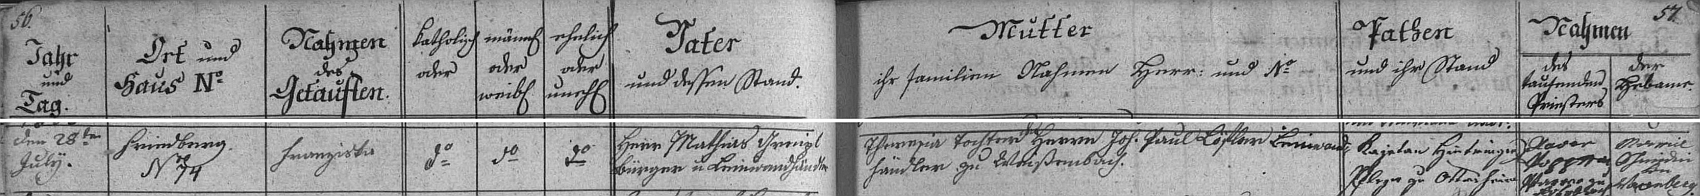 56.
57.
Jahr
und
Tag.
Ort und
Haus No
Nahmen
des
Getauften.
Katholisch
oder
männl
oder
weibl
ehelich
oder
unehl
Vater
und dessen Stand.
Mutter
ihr familien Nahmen Herr: und No
Pathen
und ihr Stand
Nahmen
des
taufenden
Priesters
der
Hebame.
den 28ten
July.
Friedberg.
No 74
Franziska
do
do
do
Herr Mathias
Bürger u Leinwandhändler
Theresia Tochter des Herrn Joh. Paul Löffler Leinwand-
händler zu Weißenbach.
Kajetan
Pfleger zu Ottensheim
Xaver
Pfarrer zu